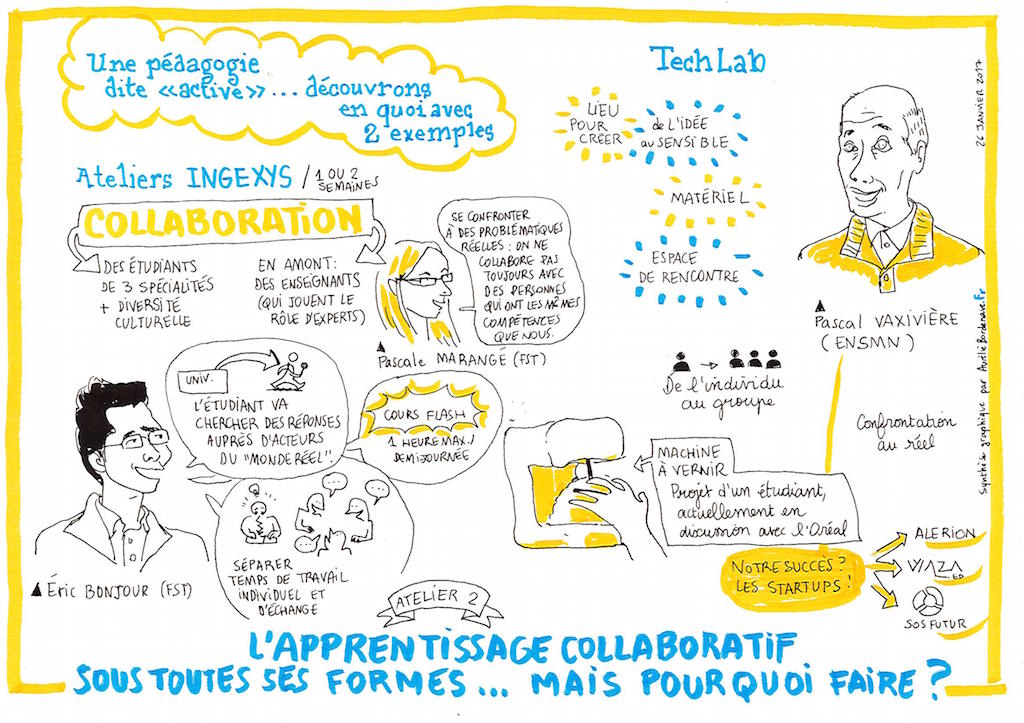 Une pédagogie
dite «active»... découvrons
en quoi avec
2 exemples
Ateliers INGEXYS / 1 OU 2
SEMAINES
COLLABORATION
DES ÉTUDIANTS
DE 3 SPÉCIALITÉS
+ DIVERSITÉ
CULTURELLE
EN AMONT:
DES ENSEIGNANTS
(QUI JOUENT LE
RÔLE D'EXPERTS)
SE CONFRONTER
À DES PROBLÉMATIQUES
RÉELLES : ON NE
COLLABORE PAS
TOUJOURS AVEC
DES PERSONNES
QUI ONT LES MÊMES
COMPÉTENCES
QUE NOUS.
Pascale MARANGÉ (FST)
UNIV.
L'ÉTUDIANT VA
CHERCHER DES RÉPONSES
AUPRÈS D'ACTEURS
DU "MONDE RÉEL".
COURS FLASH
1 HEURE MAX. /
DEMIJOURNÉE
SÉPARER
TEMPS DE TRAVAIL
INDIVIDUEL ET
D'ÉCHANGE
Éric BONJOUR (FST)
TechLab
LIEU
POUR
CRÉER
de L'IDÉE
au SENSIBLE
MATÉRIEL
ESPACE
DE RENCONTRE
Pascal VAXIVIÈRE
(ENSMN)
De l'individu
au groupe
Confrontation
au réel
MACHINE
À VERNIR
Projet d'un étudiant,
actuellement en
discussion avec l'Oréal
NOTRE SUCCÈS ?
LES STARTUPS !
ALERION
WAZA
.ED
SOS FUTUR
26 JANVIER 2017
Synthèse graphique par AurelieBordenave.fr
ATELIER 2
L'APPRENTISSAGE COLLABORATIF
SOUS TOUTES SES FORMES... MAIS POURQUOI FAIRE ?